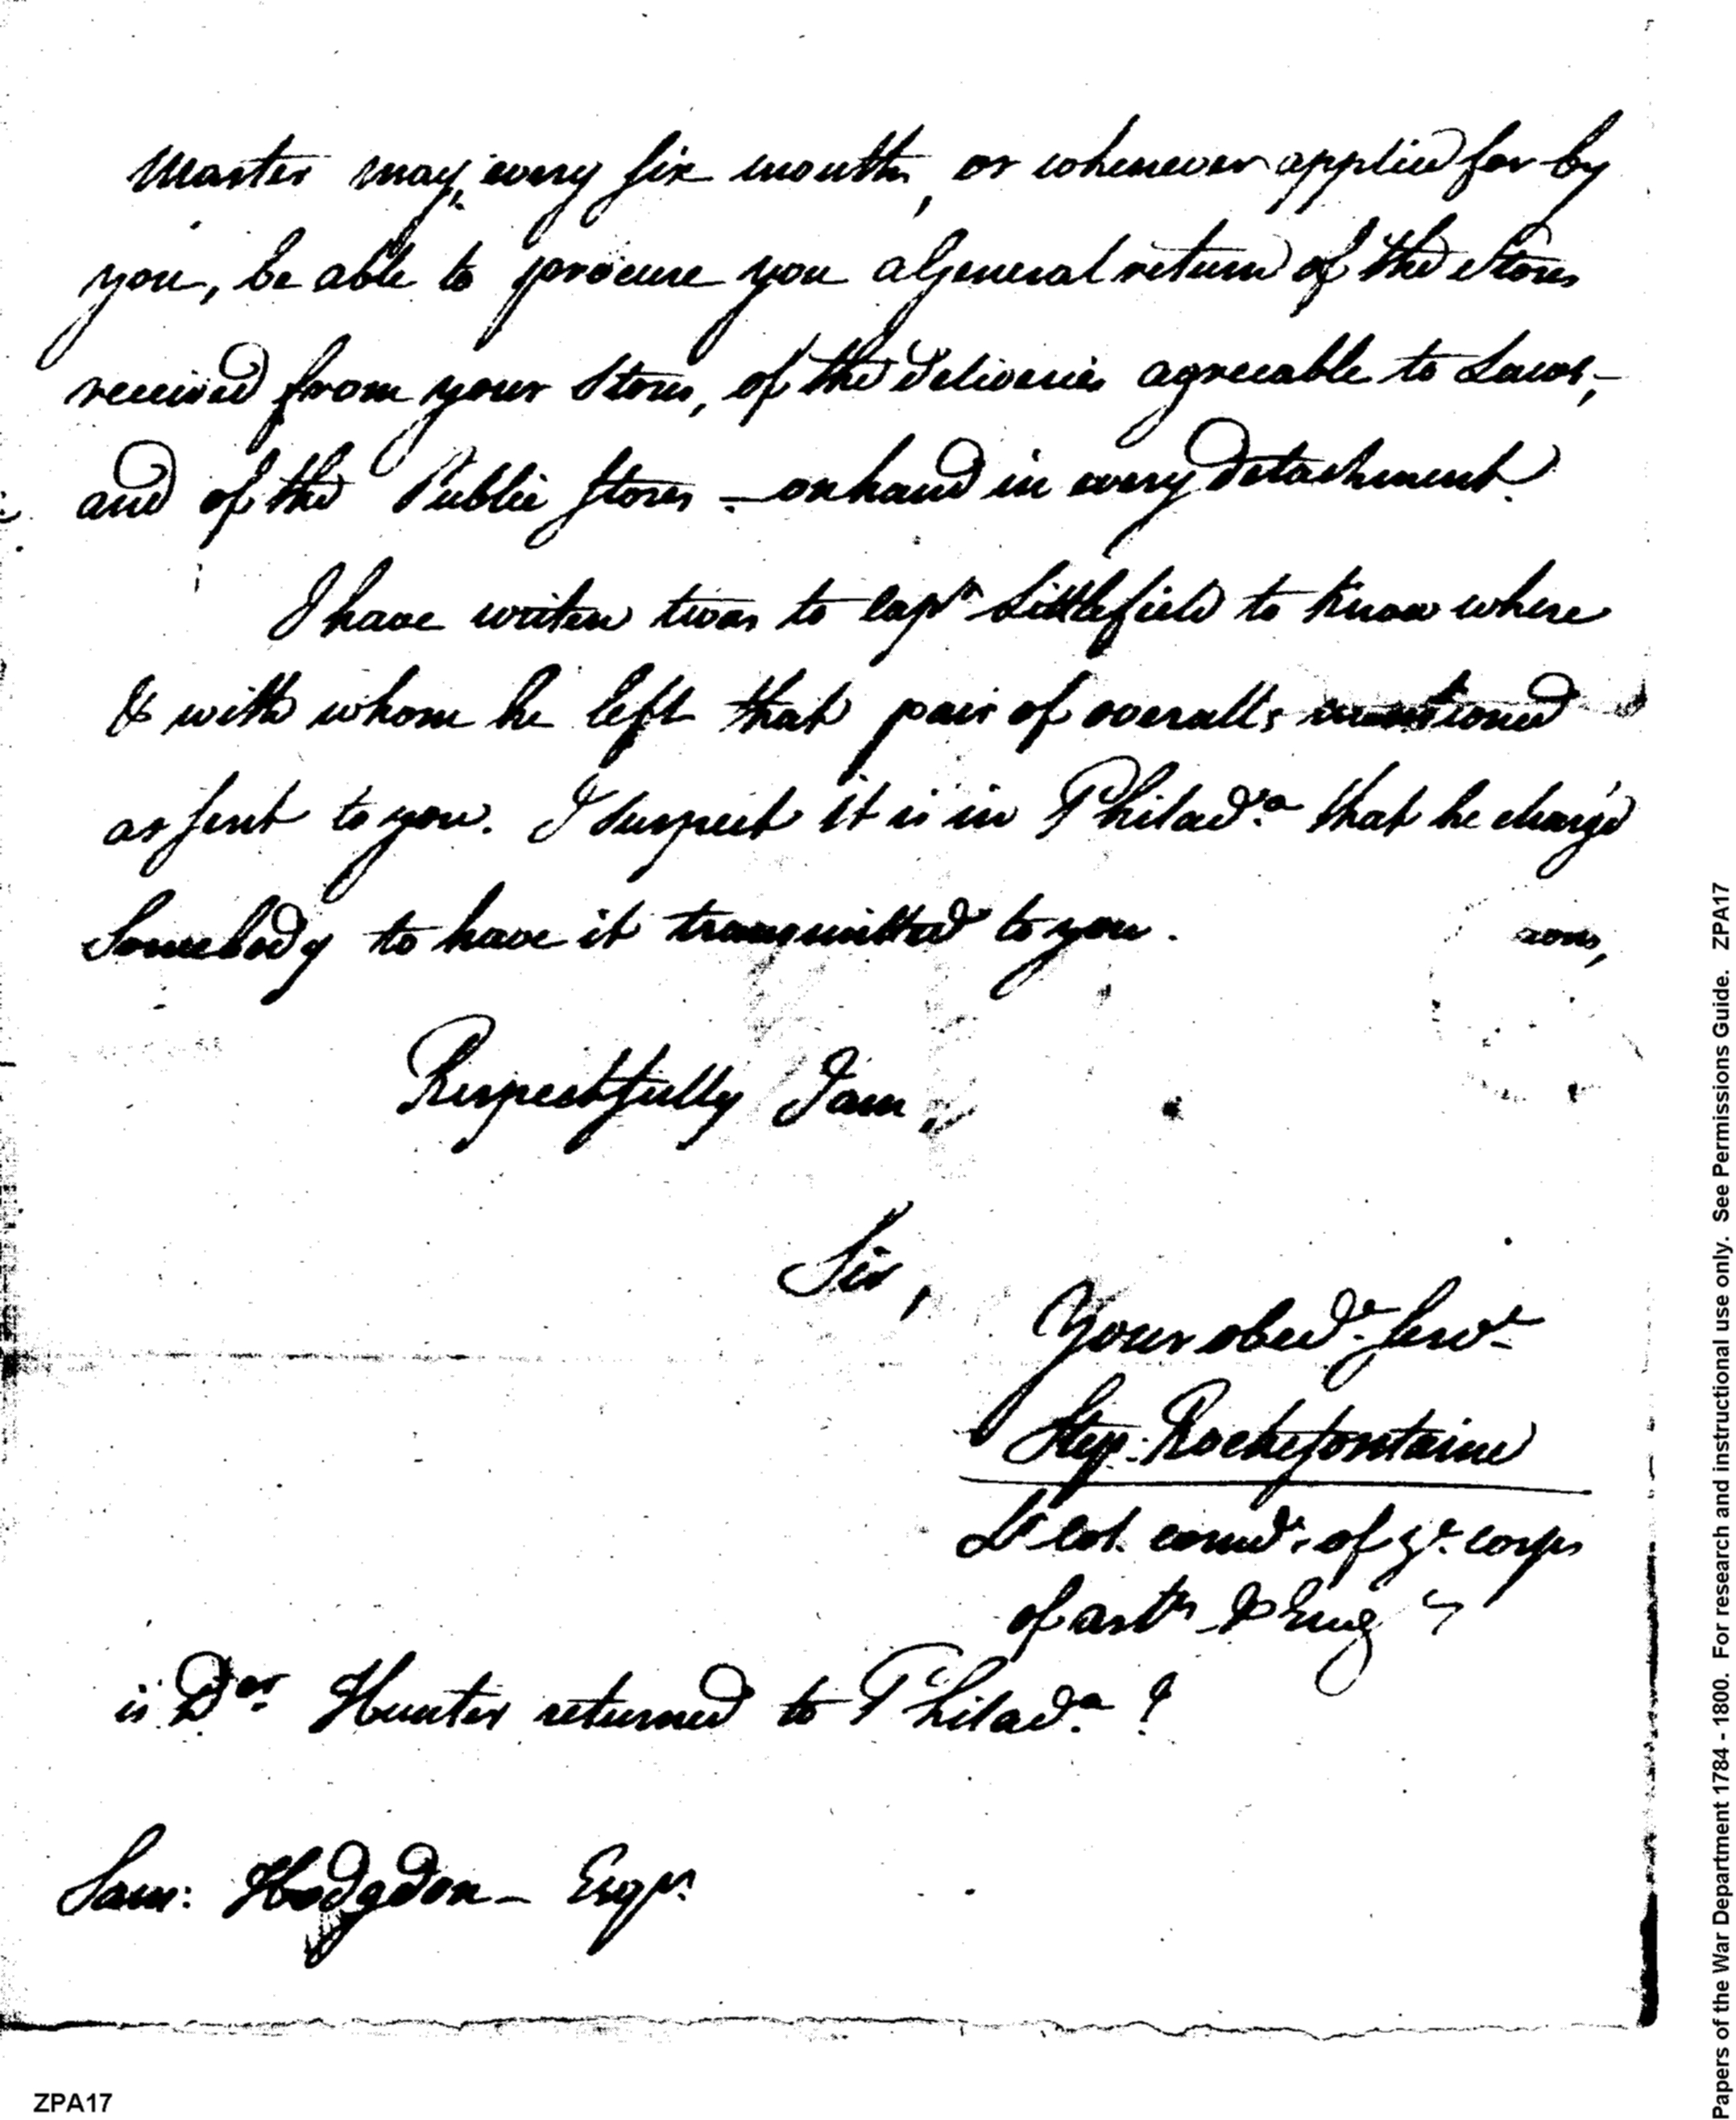 Master may, every six months, or whenever applied for by
you, be able to procure you a General return of the Stores
received from your Stores, of the deliveries agreeable to Laws,-
and of the Public Stores - on hand in every detachment.
I have writen twes to Capn Littlefield to know where
& with whom he left that pair of overalls mentioned
as sent to you. I suspect it is in Philada. that he charg'd
Somebody to have it transmitted to you.
Respectfully I am,
Sir,
Your obedt. servt.
Step. Rochefontaine
Lt Col. comdt. of ye. corps
of arts & Eng
is Dor. Hunter returned to Philada. ?
Sam: Hodgdon - Esqr.
ZPA17
Papers of the War Department 1784 - 1800. For research and instructional use only. See Permissions Guide. ZPA17